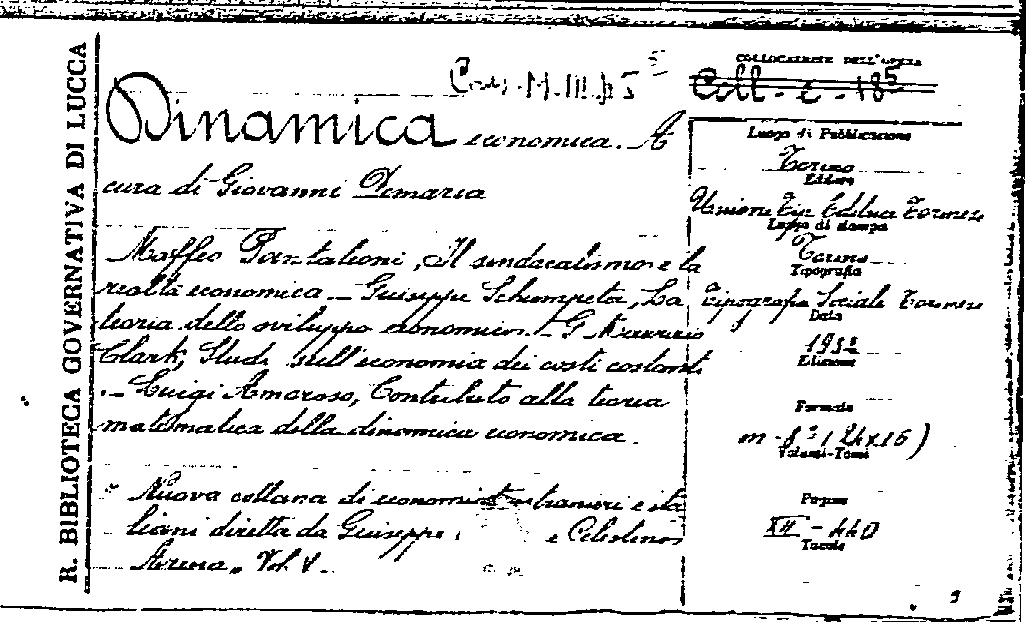 R. BIBLIOTECA GOVERNATIVA DI LUCCA
COLLOCAZIONE DELL'OPERA
Coll - c - 18⁵
Dinamica economica. A
cura di Giovanni Demaria
Maffeo Pantaleoni, Il sindacalismo e la
realtà economica. - Giuseppe Schumpeter, La
teoria dello sviluppo economico. - G. Maurizio
Clark, Studi sull'economia dei costi costanti
. - Luigi Amoroso, Contributo alla teoria
matematica della dinamica economica.
Nuova collana di economisti stranieri e ita
liani diretta da Giuseppe e Celestino
Arena. Vol. V.
Luogo di Pubblicazione
Torino
Editore
Unione Tip. Editrice Torinese
Luogo di stampa
Torino
Tipografia
Tipografia Sociale Torinese
Data
1932
Edizione
Formato
in-8° (24x16)
Volumi-Tomi
Pagine
XII - 440
Tavole